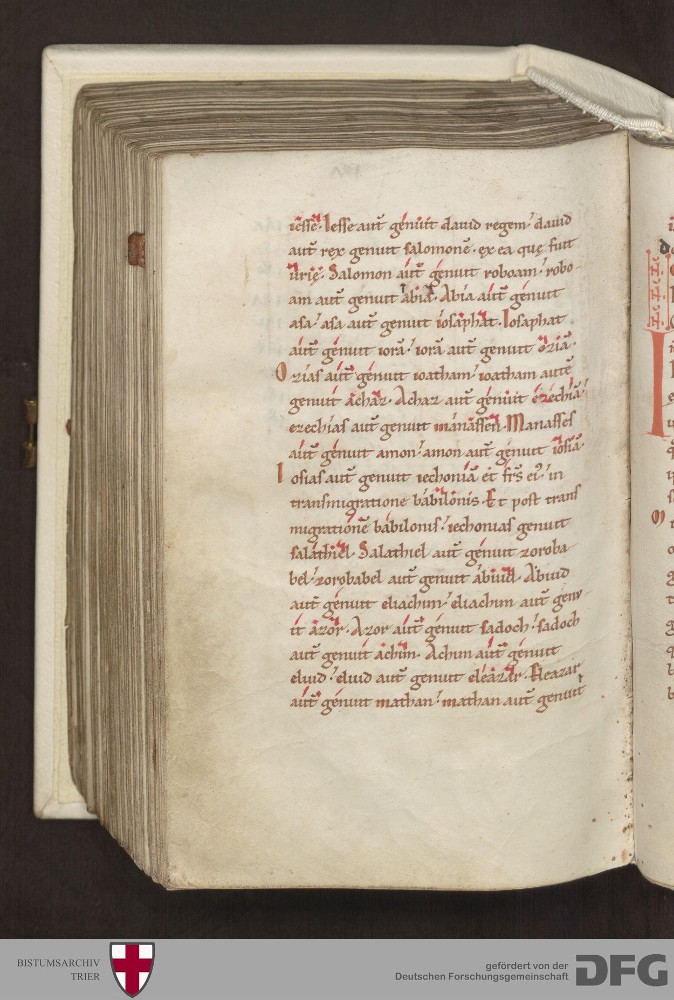 iesse. Iesse aut̄ genuit dauid regem; dauid
aut̄ rex genuit salomonē. ex ea quę fuit
urię. Salomon aut̄ genuit roboam; robo-
am aut̄ genuit abia. Abia aut̄ genuit
asa; asa aut̄ genuit iosaphat. Iosaphat
aut̄ genuit iorā; iorā aut̄ genuit oziā.
Ozias aut̄ genuit ioatham; ioatham autē
genuit achaz. Achaz aut̄ genuit ezechiā;
ezechias aut̄ genuit manassen. Manasses
aut̄ genuit amon; amon aut̄ genuit iosiā.
Iosias aut̄ genuit iechoniā et fr̄s ei'; in
transmigratione babilonis. Et post trans
migrationē babilonis; iechonias genuit
salathiel. Salathiel aut̄ genuit zoroba
bel; zorobabel aut̄ genuit abiud. Abiud
aut̄ genuit eliachim; eliachim aut̄ genu-
it azor. Azor aut̄ genuit sadoch; sadoch
aut̄ genuit achim. Achim aut̄ genuit
eliud; eliud aut̄ genuit eleazar. Eleazar
aut̄ genuit mathan; mathan aut̄ genuit
BISTUMSARCHIV
TRIER
gefördert von der
Deutschen Forschungsgemeinschaft
DFG